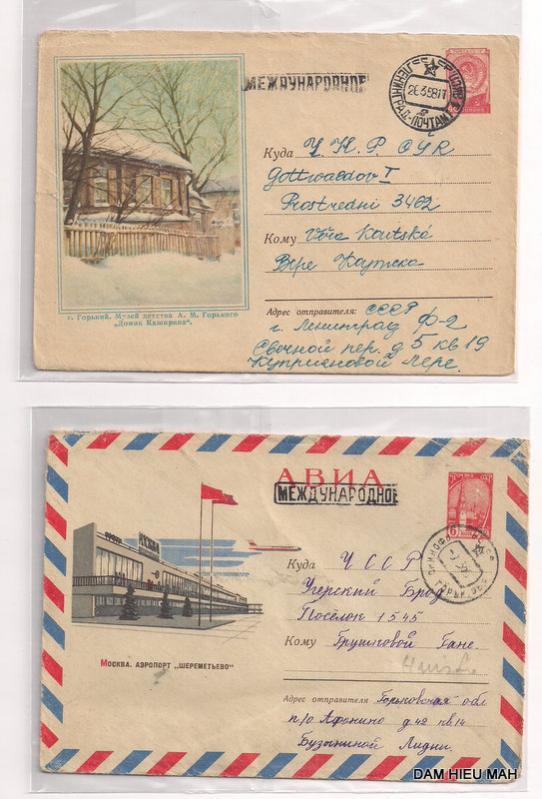 МЕЖДУНАРОДНОЕ
ЛЕНИНГРАД-ПОЧТАМТ
26.3.58.17
Куда
Gottwaldov I
Prostredni 3462
Кому Věra Koutská
Вере
г. Горький. Музей детства А. М. Горького
„Домик Каширина".
Адрес отправителя: СССР
г. Ленинград Ф-2
Свечной пер. д 5 кв 19
Куприяновой Лере.
АВИА
МЕЖДУНАРОДНОЕ
Куда ЧССР
Угерский Брод
Посёлок 1545
Кому Грушковой Гане.
МОСКВА. АЭРОПОРТ „ШЕРЕМЕТЬЕВО"
Адрес отправителя Горьковская обл
п/о Афонино д 42 кв 14
Бузыниной Лидии.
DAM HIEU MAH